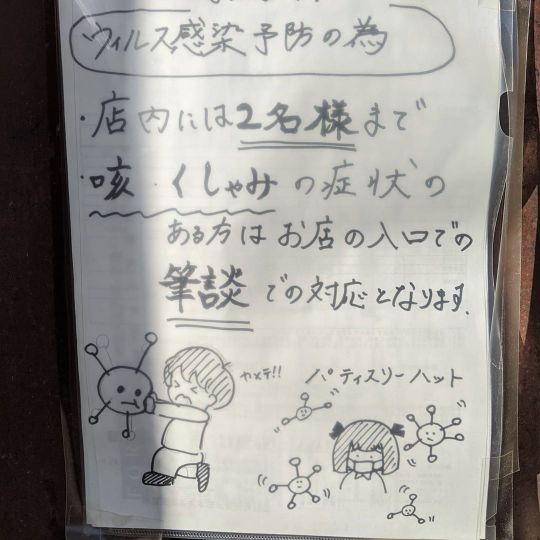 ウィルス感染予防の為
・店内には2名様まで
・咳・くしゃみの症状の
ある方はお店の入口での
筆談での対応となります。
ヤメテ!!
パティスリーハット